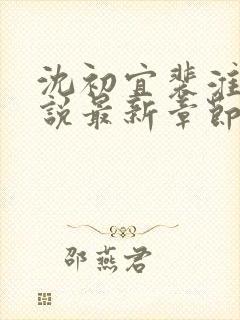 沈初宜裴淮
說最新章節
邵燕君